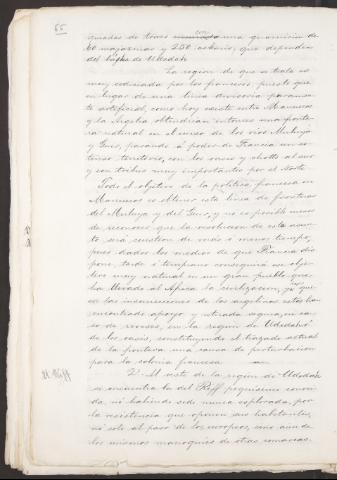 55
una guarnición de
60 majaznias y 250 askaris, que dependen
del bajha de Udcdah.
La región de que se trata es
muy codiciada por los franceses, puesto que
en lugar de una línea divisoria puramen-
te artificial, como hoy existe entre Marruecos
y la Argelia obtendrían entonces una fronte-
ra natural en el curso de los ríos Muluya
y Guir, pasando á poder de Francia un ex-
tenso territorio, con los oasis y chotts al sur
y con tribus muy importantes por el Norte.
Todo el objetivo de la política francesa en
Marruecos es obtener esta línea de fronteras
del Muluya y del Guir, y no es posible menos
de reconocer que la resolución de este asun-
to será cuestión de más ó menos tiempo,
pues dados los medios de que Francia dis-
pone, tarde ó temprano conseguirá ese obje-
tivo muy natural en un gran pueblo que
ha llevado al África la civilización, ya que
las insurrecciones de los argelinos estos han
encontrado apoyo y retirada segura, en ca-
so de reveses, en la región de Udcdah ó
de los oasis, constituyendo el trazado actual
de la frontera una causa de perturbación
para la colonia francesa.
El Riff
2º Al oeste de la región de Udcdah
se encuentra la del Riff poquísimo conoci-
da, ni habiendo sido nunca explorada, por
la resistencia que oponen sus habitantes,
no solo al paso de los europeos, sino aún de
los mismos marroquíes de otras comarcas.